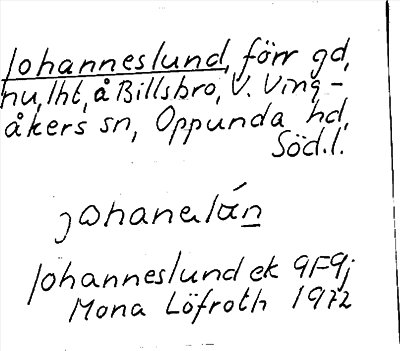 Johanneslund, förr gd,
nu, lht, å Billsbro, V. Ving-
åkers sn, Oppunda hd,
Söd.l.
Johanneslund ek 9F9j
Mona Löfroth 1972